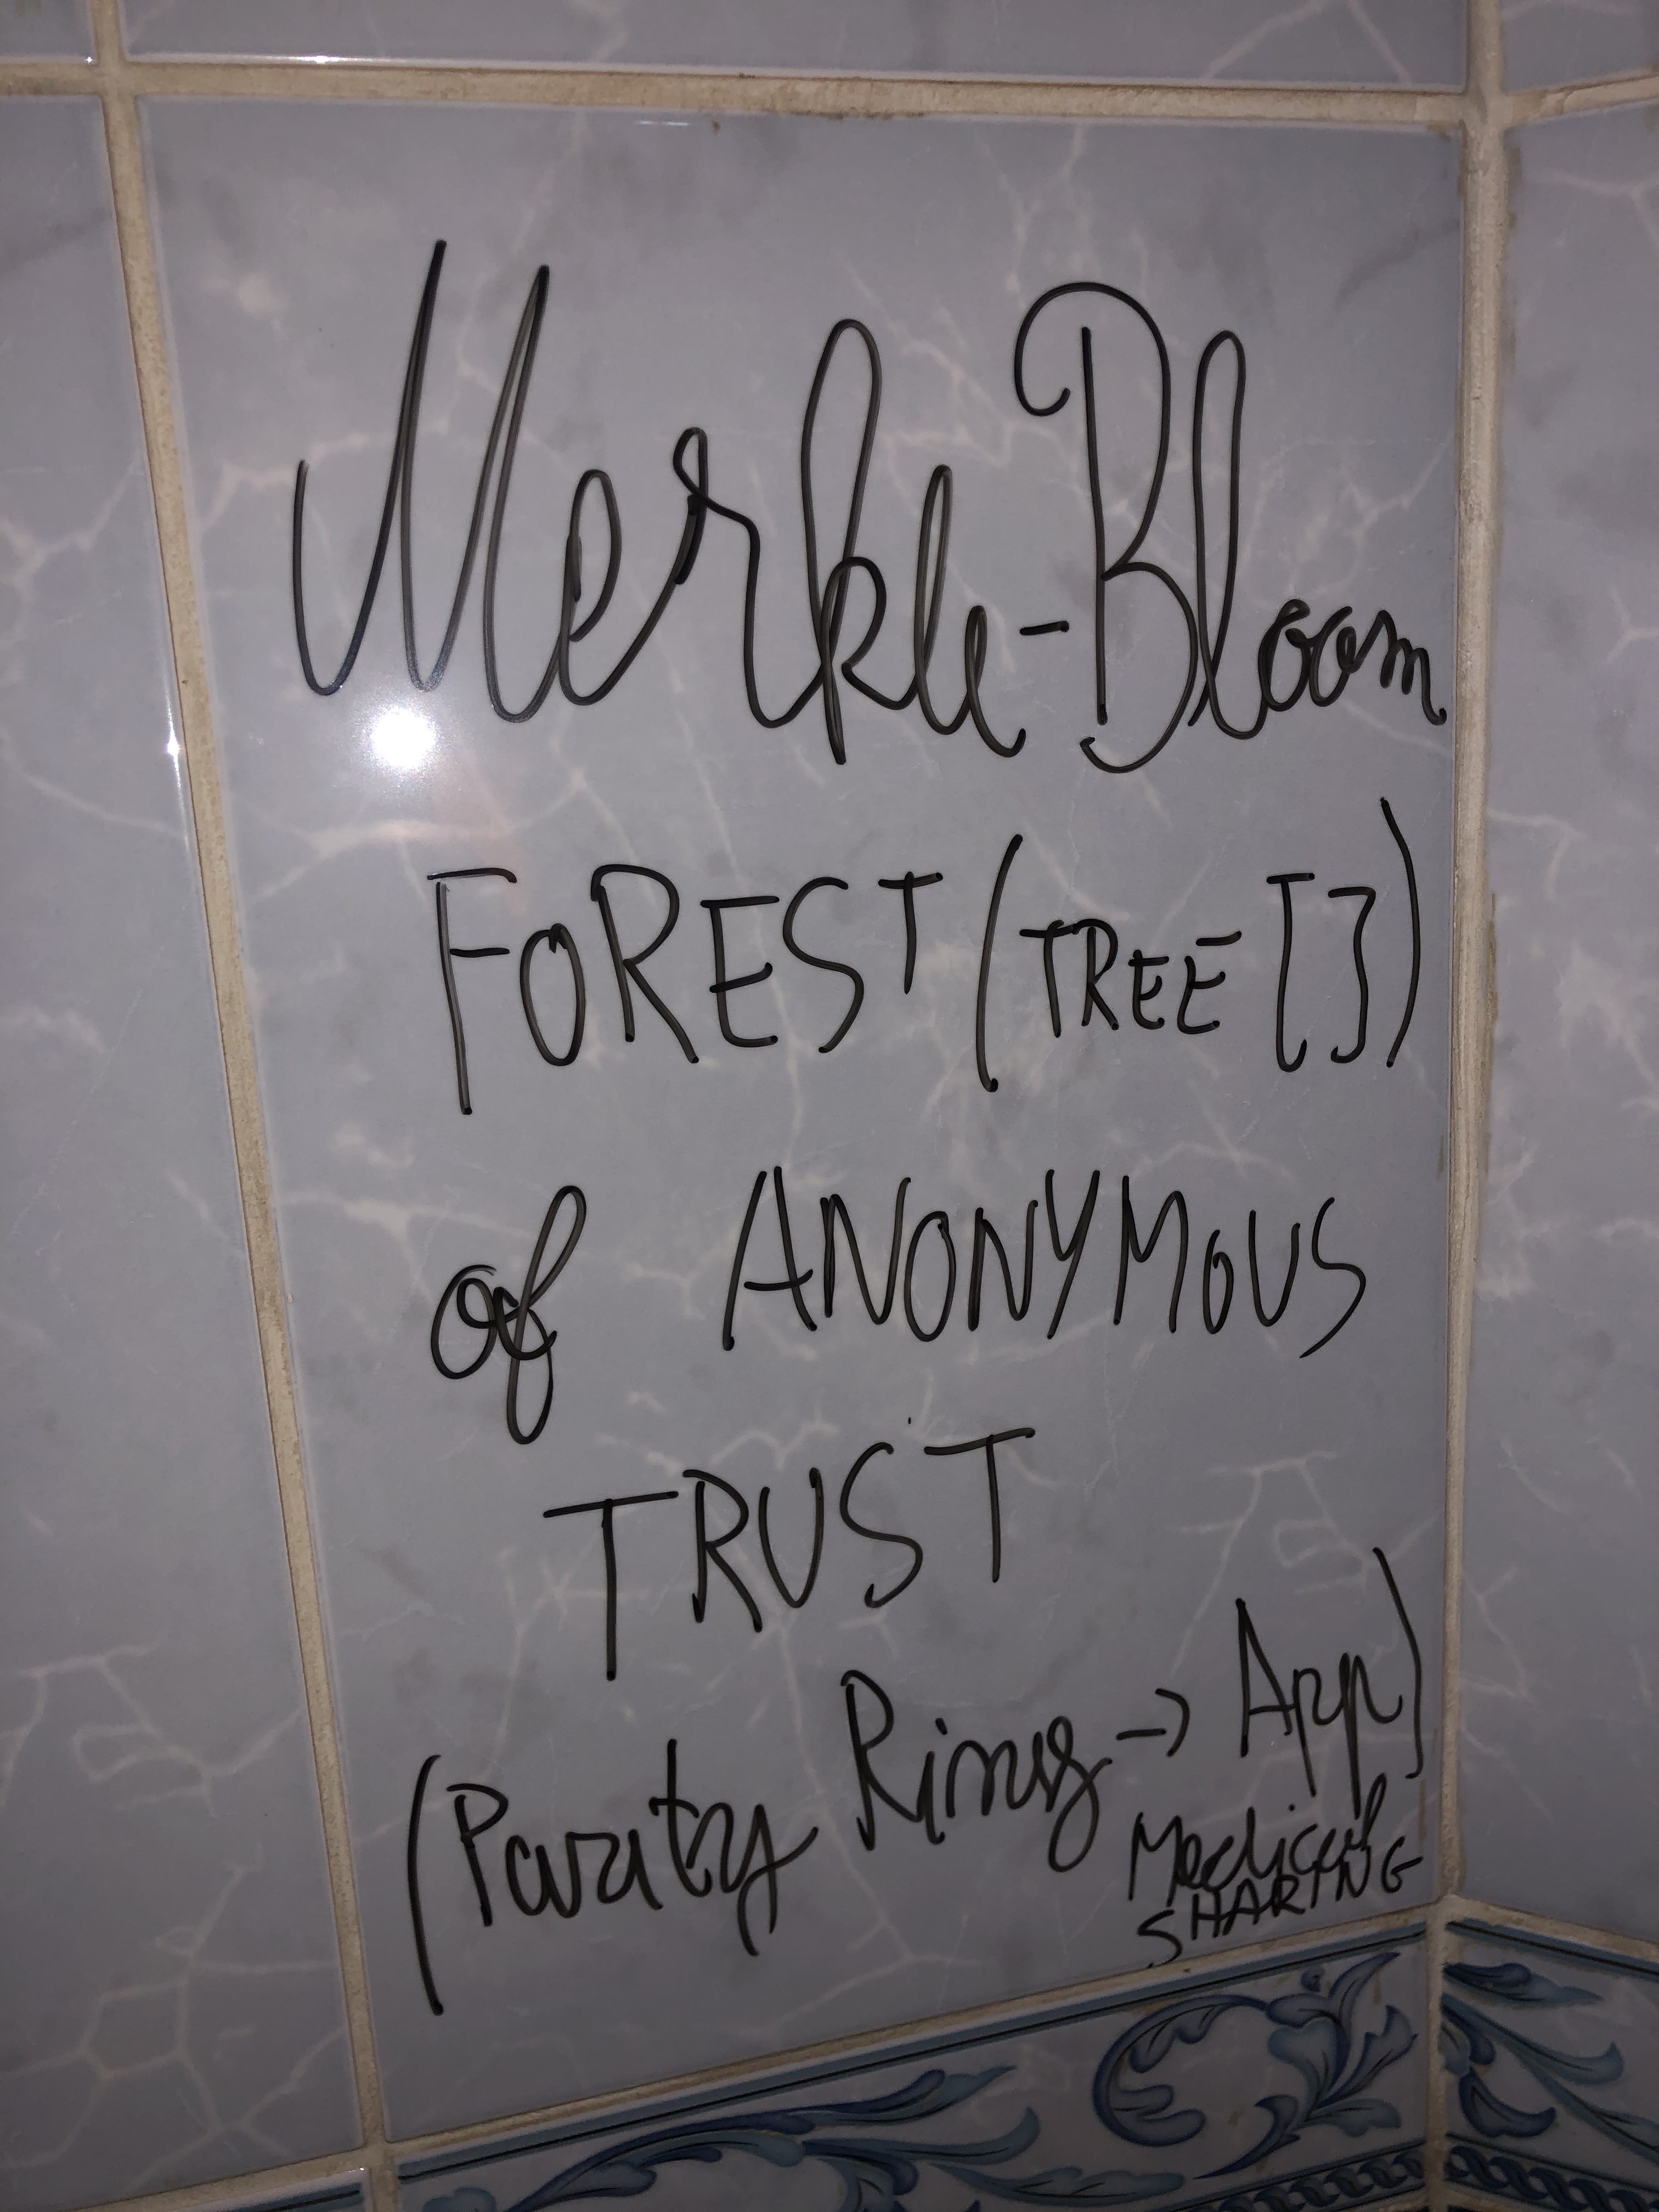 Merkle-Bloom
FOREST (TREE [])
of ANONYMOUS
TRUST
(Parity Rings -> App)
Medical
SHARING